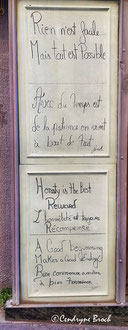 Rien n'est facile
Mais tout est Possible
Avec du Temps et
de la patience on vient
à bout de tout
Honesty is the Best
Reward
L'honnêteté est toujours
Récompensée
A Good beginning
Makes a Good ending
Bien commencer amène
à bien Terminer
©Cendryne Broch